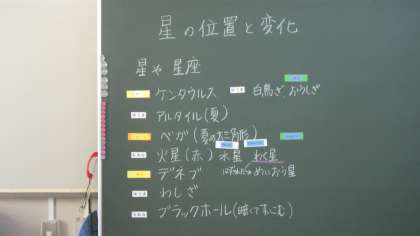 星の位置と変化
星や星座
ケンタウルス 白鳥ざ おうしざ
アルタイル(夏)
ベガ(夏の大三角形)
火星(赤) 水星 わく星
デネブ めいおう星
わしざ
ブラックホール(暗くてすいこむ)